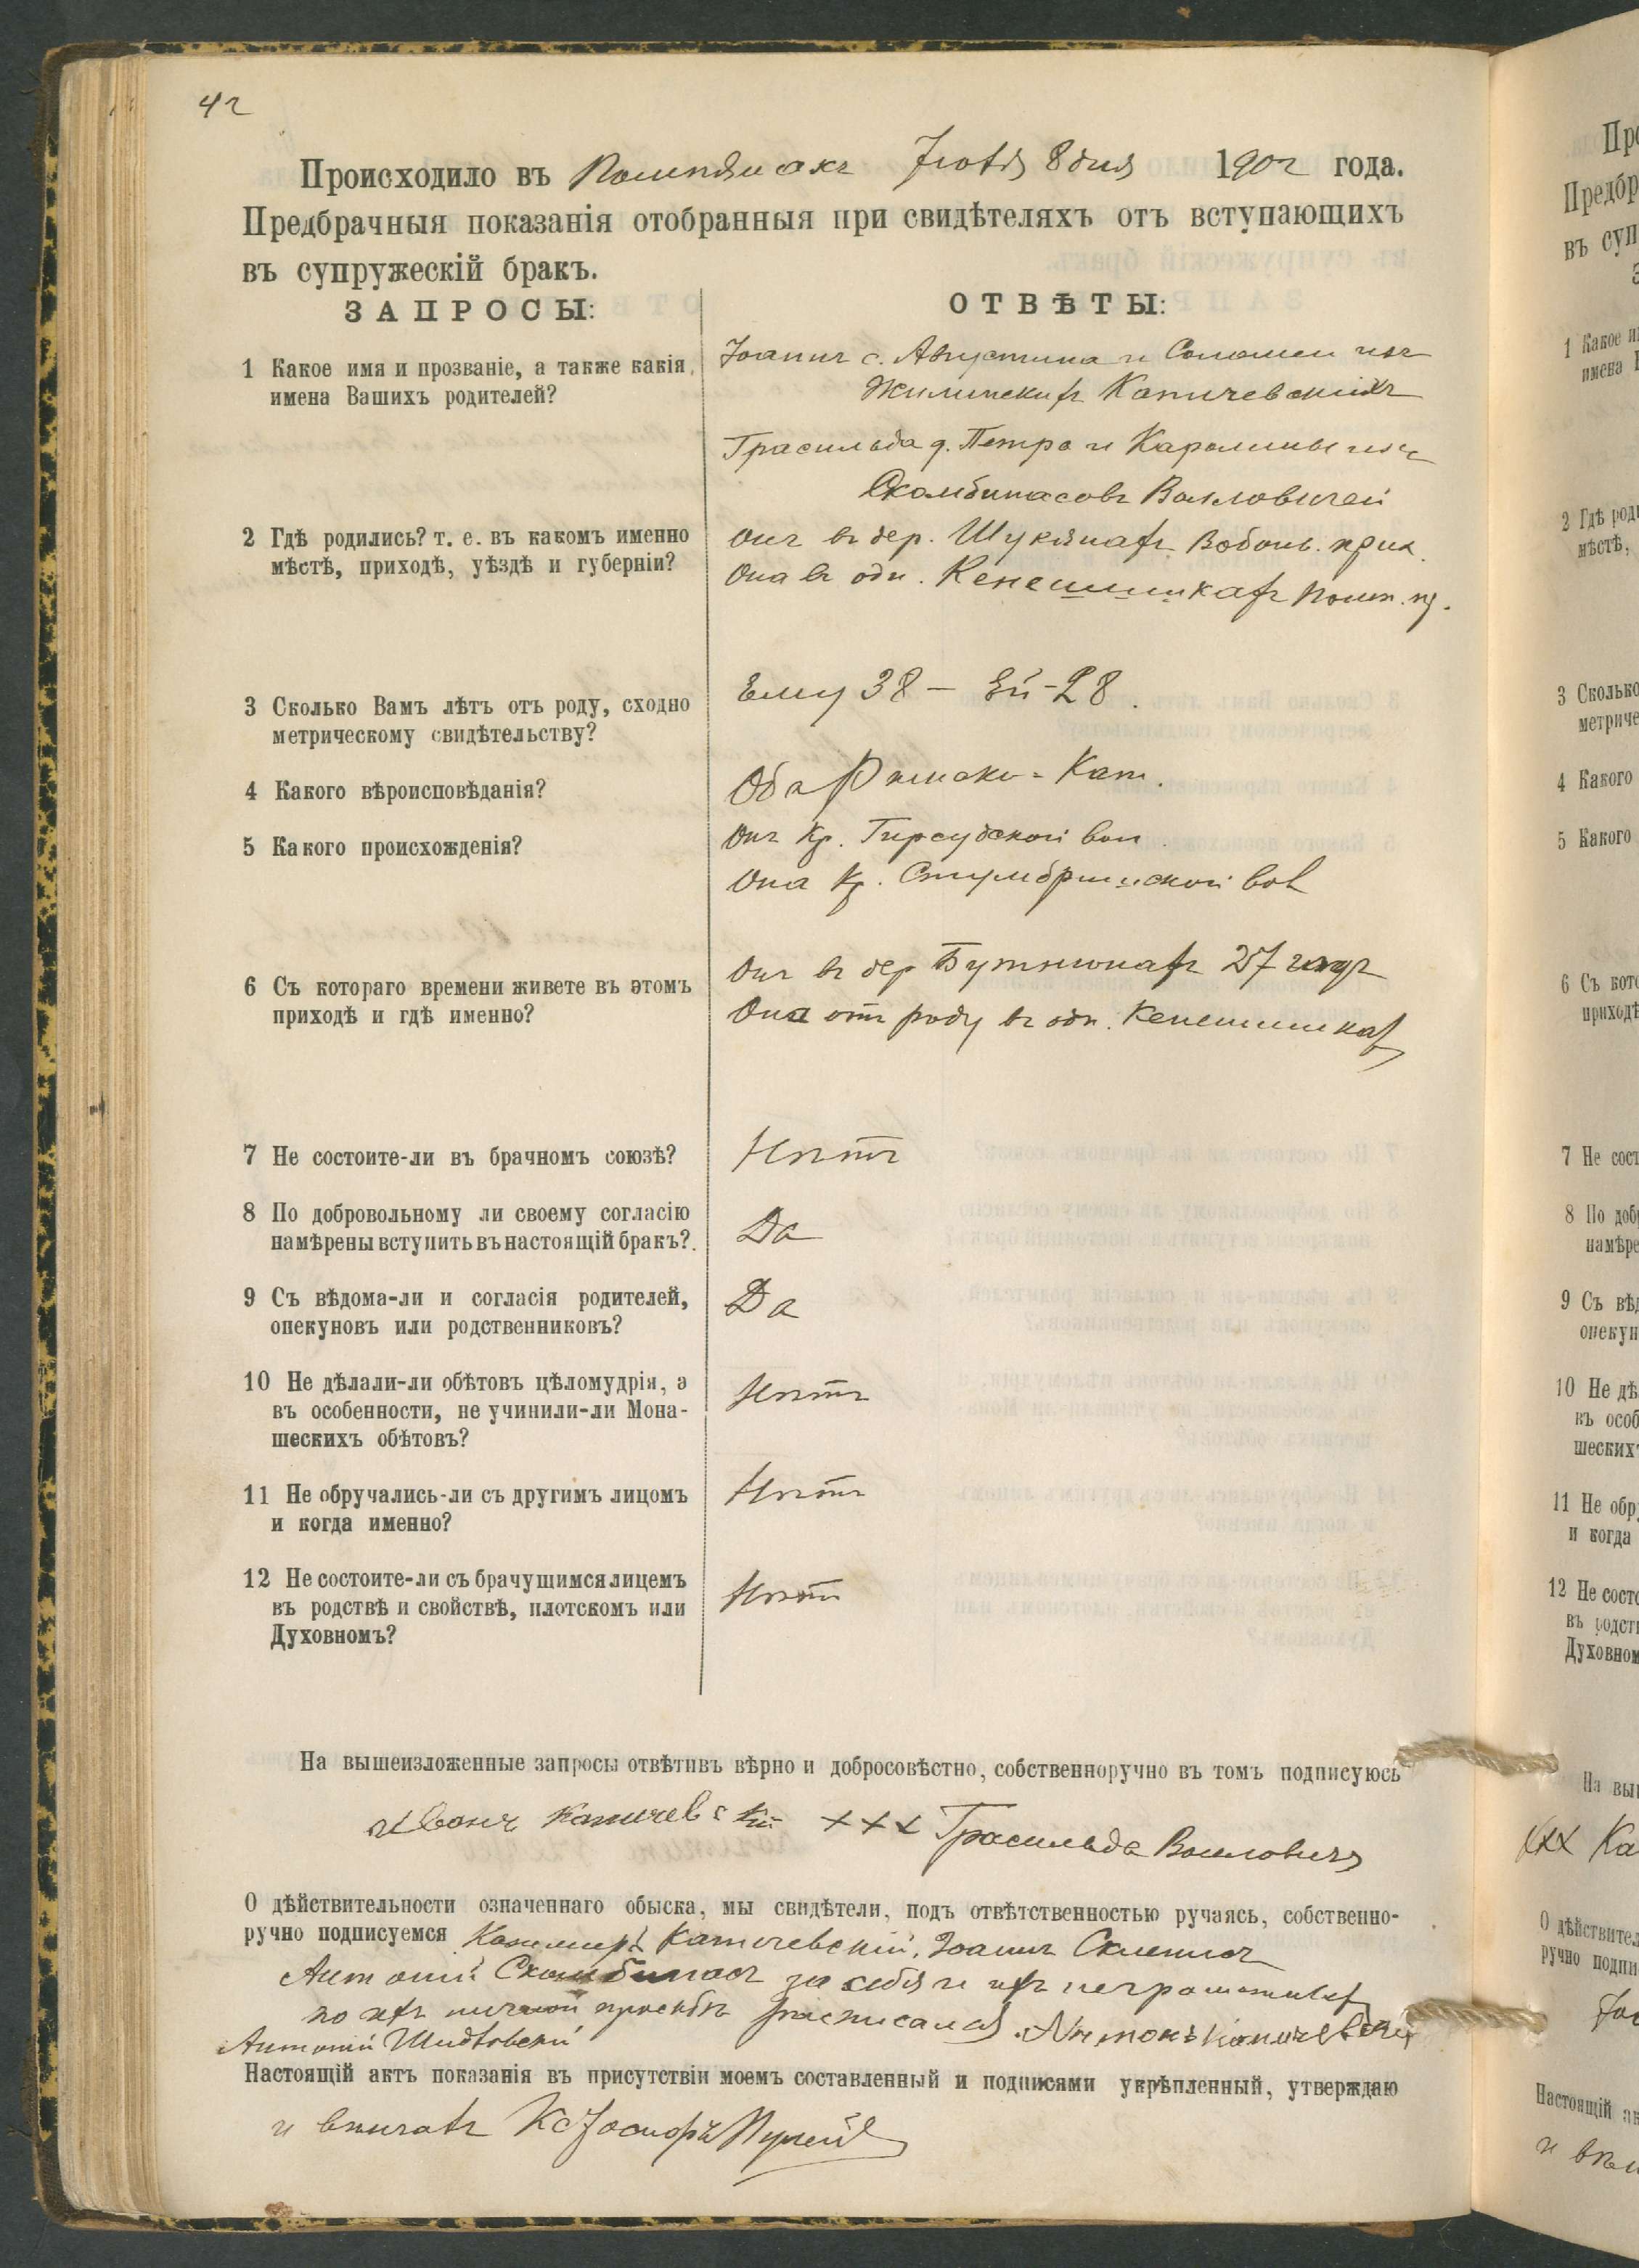 42
Происходило въ Іюля 8 дня 1902 года.
Предбрачныя показанія отобранныя при свидѣтеляхъ отъ вступающихъ
въ супружескій бракъ.
ЗАПРОСЫ:
ОТВѢТЫ:
1 Какое имя и прозваніе, а также какія
имена Вашихъ родителей?
Іоаннъ с. Августина и Саломеи изъ
Жилинскихъ Каничевскихъ
Грасильда д. Петра и Каролины изъ
Скамбинасовъ
2 Гдѣ родились? т. е. въ какомъ именно
мѣстѣ, приходѣ, уѣздѣ и губерніи?
Онъ въ дер. Шукянахъ прих.
Она въ одн. Кенешишкахъ
3 Сколько Вамъ лѣтъ отъ роду, сходно
метрическому свидѣтельству?
Ему 38 – Ей - 28.
4 Какого вѣроисповѣданія?
Оба Римско-Кат.
5 Какого происхожденія?
Онъ Кр. Гирсудской вол
Она Кр. Стумбришской вол
6 Съ котораго времени живете въ этомъ
приходѣ и гдѣ именно?
Онъ въ дер Бутнюнахъ 27
Она отъ роду въ одн. Кенешишкахъ
7 Не состоите-ли въ брачномъ союзѣ?
Нѣтъ
8 По добровольному ли своему согласію
намѣрены вступить въ настоящій бракъ?
Да
9 Съ вѣдома-ли и согласія родителей,
опекуновъ или родственниковъ?
Да
10 Не дѣлали-ли обѣтовъ цѣломудрія, а
въ особенности, не учинили-ли Мона-
шескихъ обѣтовъ?
Нѣтъ
11 Не обручались-ли съ другимъ лицомъ
и когда именно?
Нѣтъ
12 Не состоите-ли съ брачущимся лицемъ
въ родствѣ и свойствѣ, плотскомъ или
Духовномъ?
Нѣтъ
На вышеизложенные запросы отвѣтивъ вѣрно и добросовѣстно, собственноручно въ томъ подписуюсь
Иванъ Каничевскій +++ Грасильда
О дѣйствительности означеннаго обыска, мы свидѣтели, подъ отвѣтственностью ручаясь, собственно-
ручно подписуемся Казимиръ Каничевскій, Іоаннъ
Антоній Скамбинасъ за себя и ихъ неграмотныхъ
по ихъ личной просьбѣ расписался. Антонъ Каничевскій
Антоній
Настоящій актъ показанія въ присутствіи моемъ составленный и подписями укрѣпленный, утверждаю
и вѣнчалъ Кс Іосифъ